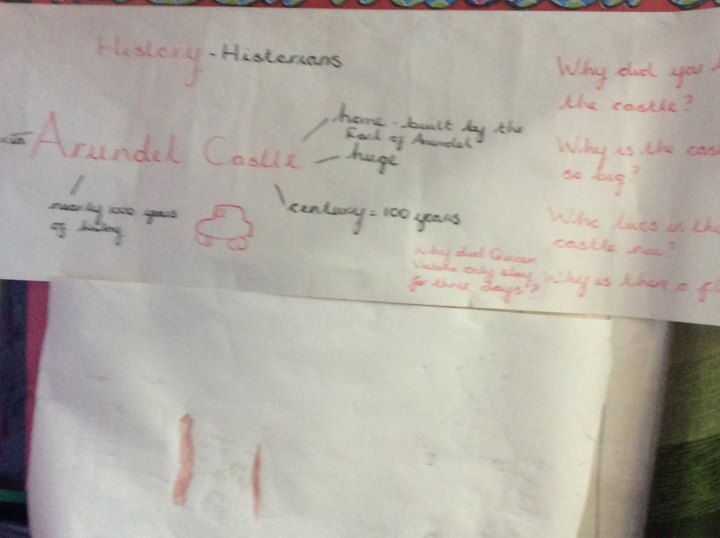 History - Historians
Arundel Castle
home - built by the
Earl of Arundel
huge
century = 100 years
nearly 1000 years
of history
Why did you
the castle?
Why is the cas
so big?
Who lives in the
castle now?
Why did Queen
Victoria only stay
for three days?
Why is there a fl